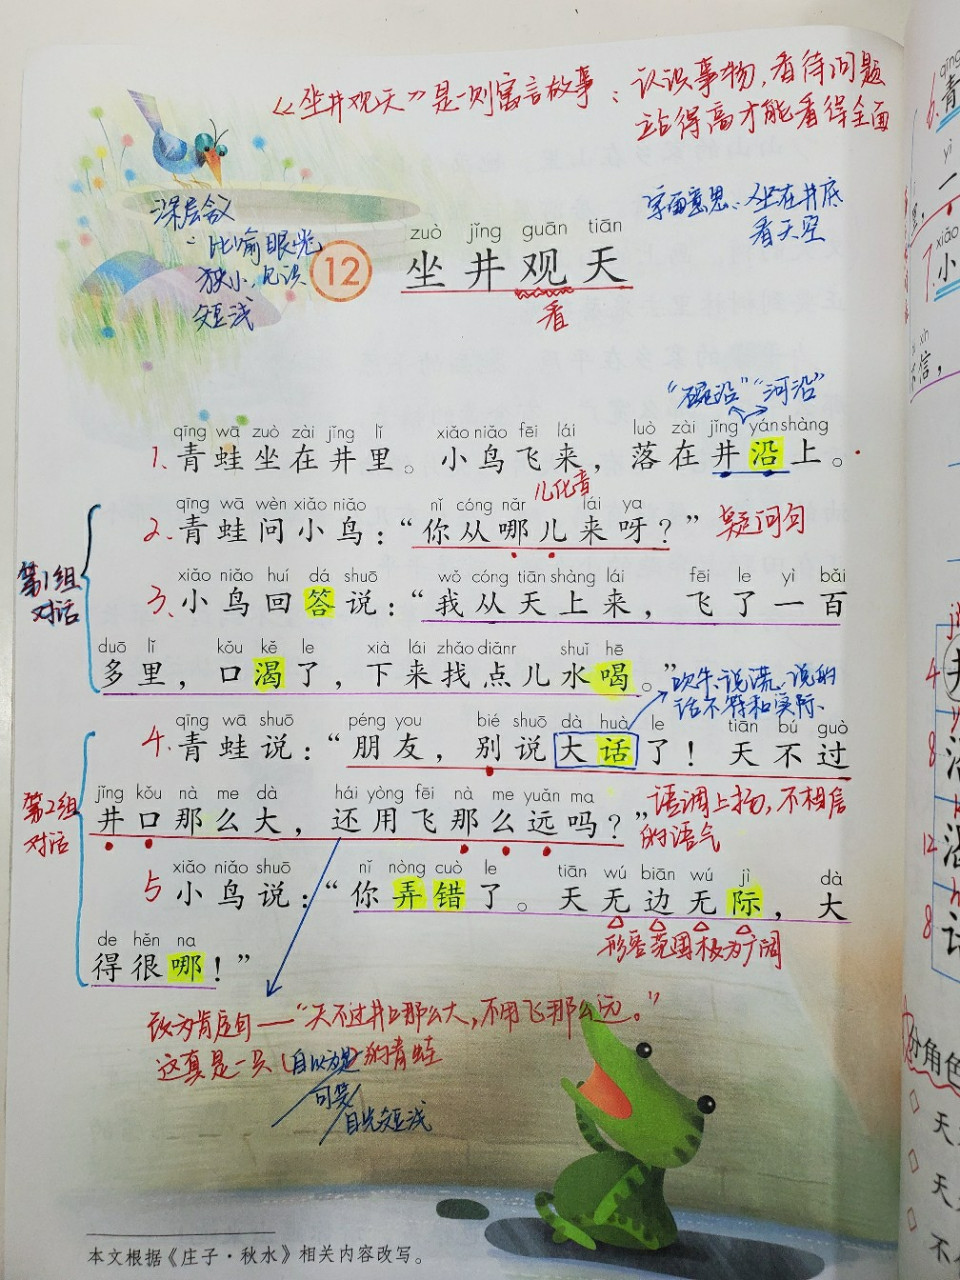 《坐井观天》是一则寓言故事：认识事物，看待问题
站得高才能看得全面
深层含义
：比喻眼光
狭小，见识
短浅
字面意思：坐在井底
看天空
zuò jǐng guān tiān
12 坐井观天
看
“碗沿”“河沿”
qīng wā zuò zài jǐng lǐ xiǎo niǎo fēi lái luò zài jǐng yán shàng
1. 青蛙坐在井里。小鸟飞来，落在井沿上。
儿化音
qīng wā wèn xiǎo niǎo nǐ cóng nǎr lái ya
2. 青蛙问小鸟：“你从哪儿来呀？” 疑问句
第1组
对话
xiǎo niǎo huí dá shuō wǒ cóng tiān shàng lái fēi le yì bǎi
3. 小鸟回答说：“我从天上来，飞了一百
duō lǐ kǒu kě le xià lái zhǎo diǎnr shuǐ hē
多里，口渴了，下来找点儿水喝。”
吹牛、说谎、说的
话不符和实际、
qīng wā shuō péng you bié shuō dà huà le tiān bú guò
4. 青蛙说：“朋友，别说大话了！天不过
第2组
对话
jǐng kǒu nà me dà hái yòng fēi nà me yuǎn ma
井口那么大，还用飞那么远吗？”
语调上扬，不相信
的语气
xiǎo niǎo shuō nǐ nòng cuò le tiān wú biān wú jì dà
5 小鸟说：“你弄错了。天无边无际，大
形容范围极为广阔
de hěn na
得很哪！”
改为肯定句——“天不过井口那么大，不用飞那么远。”
这真是一只（自以为是）的青蛙
可笑
目光短浅
本文根据《庄子·秋水》相关内容改写。
qīng
6.青
yì
一
xiǎo
7.小
xìn
信，
4
8
12
8
分角色
天
天
不